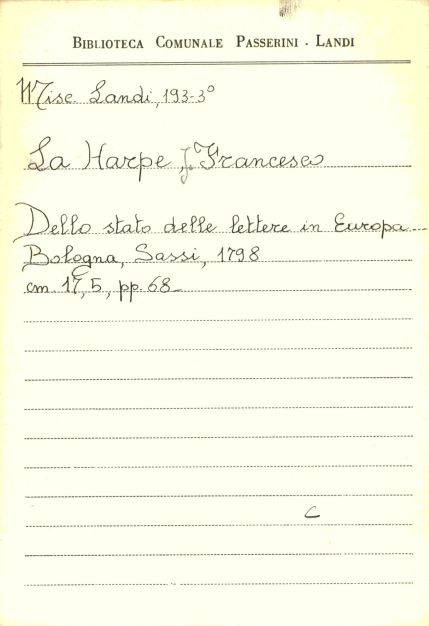 BIBLIOTECA COMUNALE PASSERINI - LANDI
Misc. Landi, 193-3°
La Harpe, J. Francesco
Dello stato delle lettere in Europa...
Bologna, Sassi, 1798
cm. 17,5, pp. 68-
C